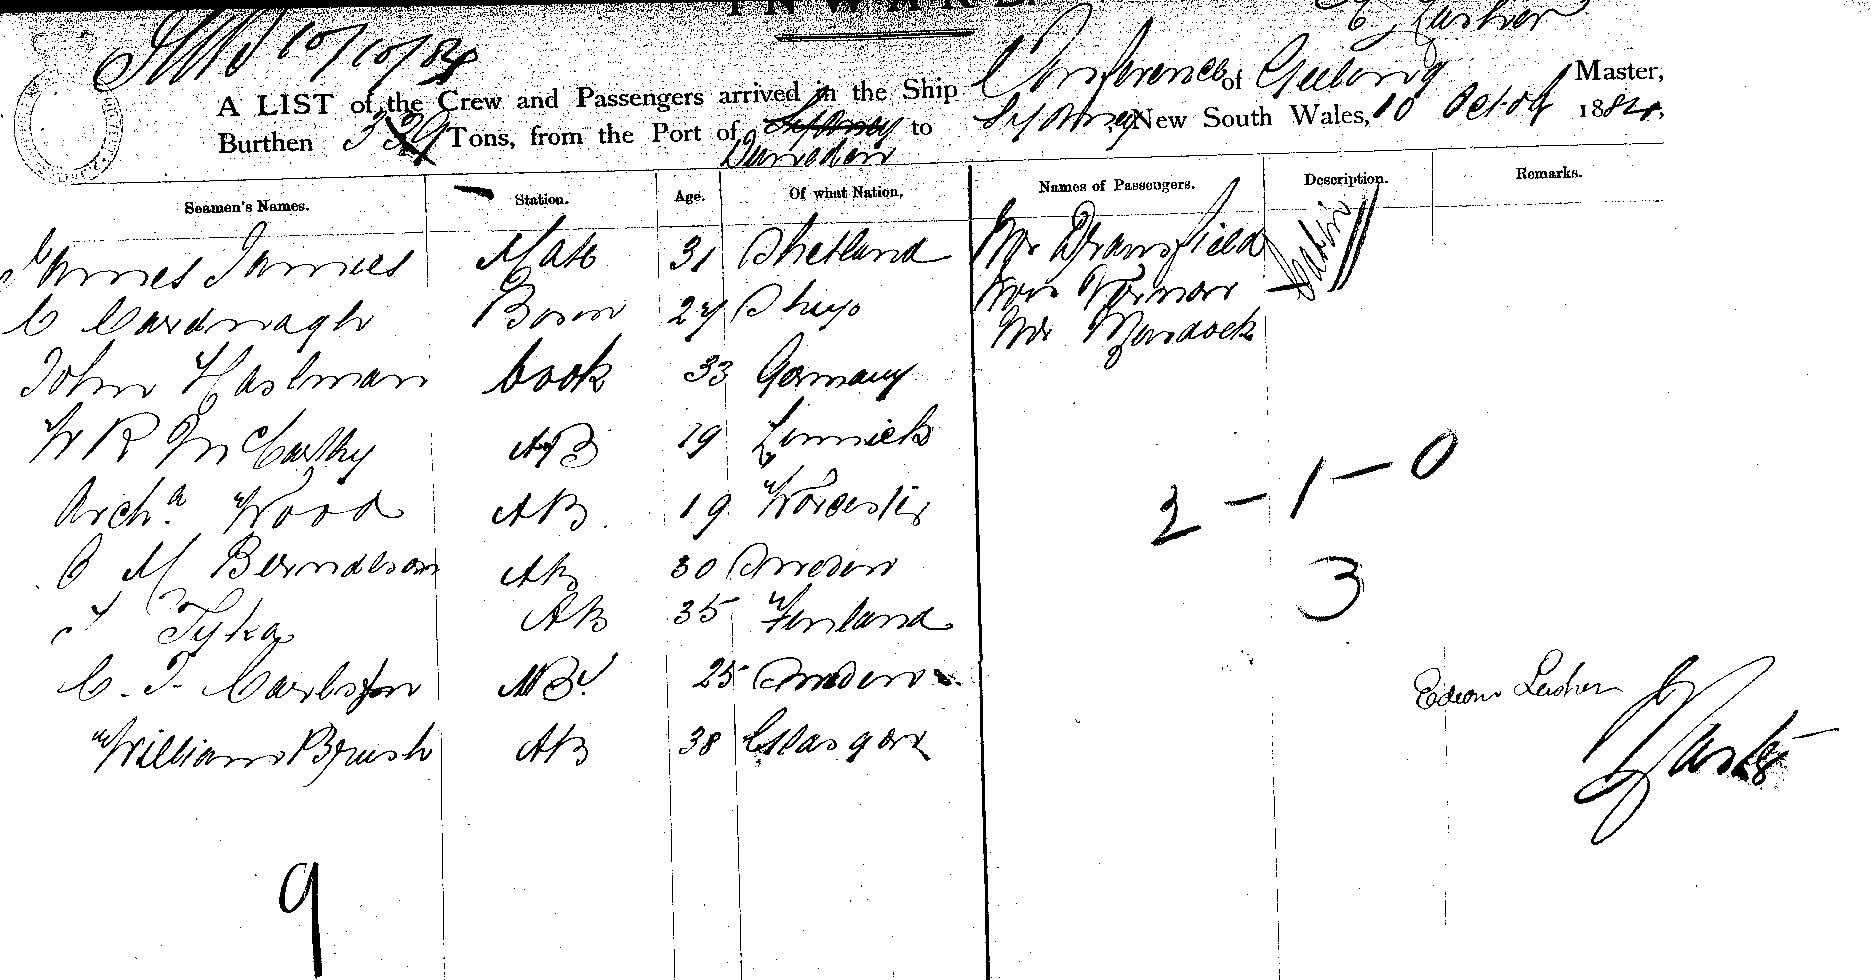 INWARD.
10/10/84
A LIST of the Crew and Passengers arrived in the Ship Conference of Geelong Master,
Burthen 329 Tons, from the Port of Sydney to Sydney New South Wales, 10 Octob 1884.
Dunedin
Seamen's Names. Station. Age. Of what Nation. Names of Passengers. Description. Remarks.
James James Mate 31 Shetland Mr Dransfield Cabin
C Cavanagh Bosun 27 Mrs
John Haslman Cook 33 Germany Mr Murdock
W R McCarthy AB 19 Limrick
Archd Wood AB 19 Worcester
2 - 1 - 0
M Berndtson AB 30 Sweden
3
Tyka AB 35 Finland
C. J. Carlsson AB 25 Sweden
William Brush AB 38 Glasgow
Master
9